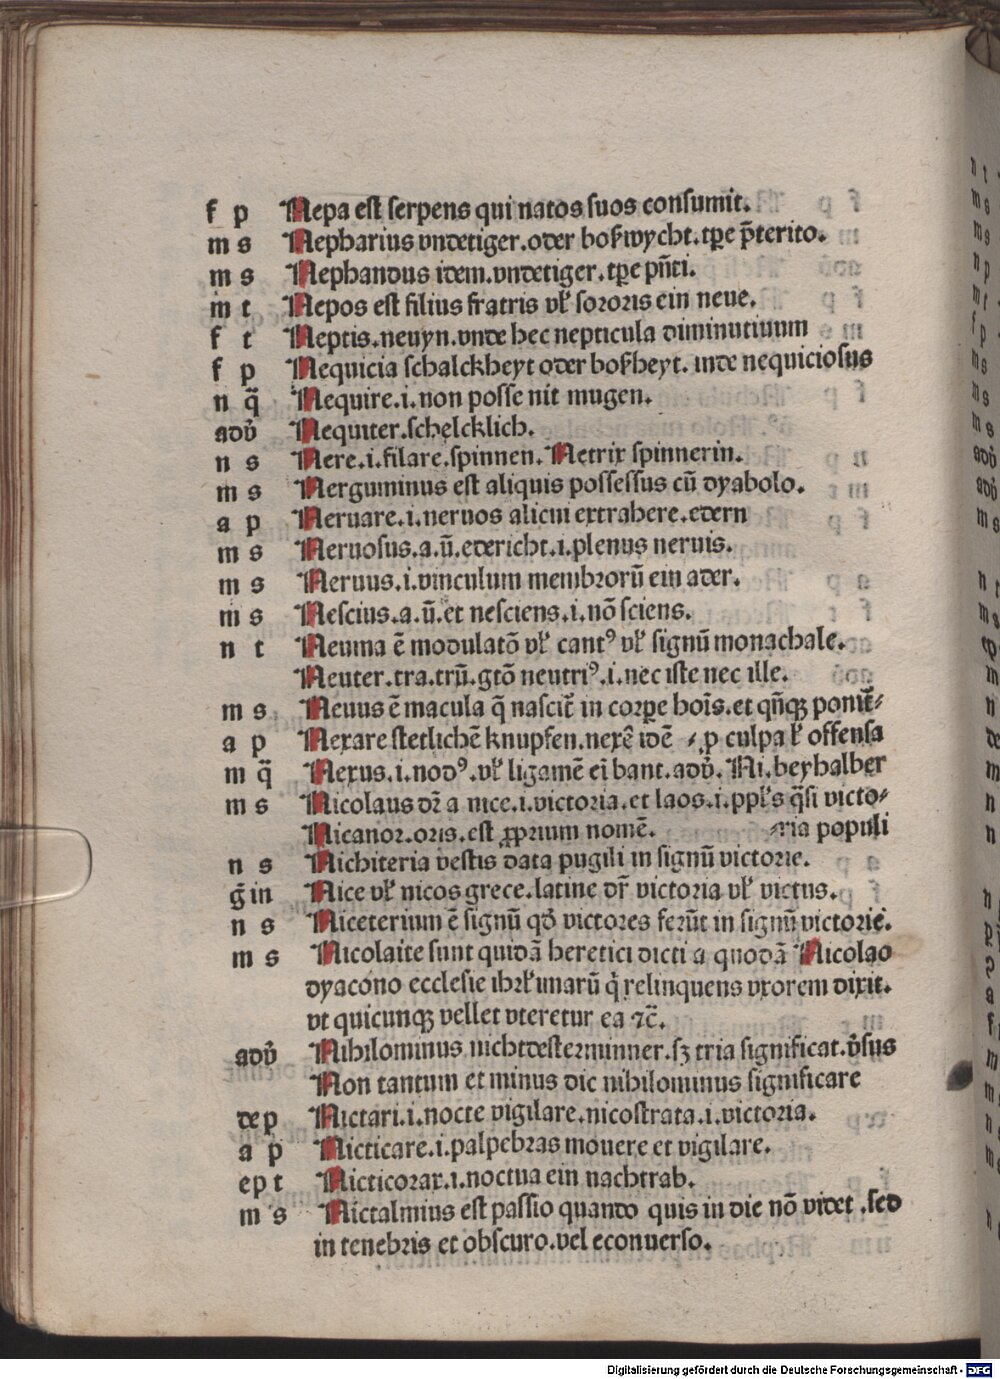 f p Nepa est serpens qui natos suos consumit.
m s Nepharius vndetiger.oder boßwycht.tꝑe p̄terito.
m s Nephandus idem.vndetiger.tꝑe pn̄ti.
m t Nepos est filius fratris vꝉ sororis ein neue.
f t Neptis.neuyn.vnde hec nepticula diminutiuum
f p Nequicia schalckheyt oder boßheyt. inde nequiciosus
n q̄ Nequire.i.non posse nit mugen.
adv̄ Nequiter.schelcklich.
n s Nere.i.filare.spinnen.Netrix spinnerin.
m s Nerguminus est aliquis possessus cū dyabolo.
a p Neruare.i.neruos alicui extrahere.edern
m s Neruosus.a.ū.edericht.i.plenus neruis.
m s Neruus.i.vinculum membrorū ein ader.
m s Nescius.a.ū.et nesciens.i.nō sciens.
n t Neuma ē modulatō vꝉ cantꝰ vꝉ signū monachale.
Neuter.tra.trū.gtō neutriꝰ.i.nec iste nec ille.
m s Neuus ē macula q̄ nascit̄ in corꝑe hoīs.et qn̄qꝫ ponit̄⸗
a p Nexare stetlichē knupfen.nexē idē ⸗ꝓ culpa ꝉ offensa
m q̄ Nexus.i.nodꝰ.vꝉ ligamē eī bant.adv̄. Ni.beyhalber
m s Nicolaus dr̄ a nice.i.victoria.et laos.i.ppꝉs q̄si victo⸗
Nicanor.oris.est ꝓprium nomē. ⸗ria populi
n s Nichiteria vestis data pugili in signū victorie.
ḡ in Nice vꝉ nicos grece.latine dr̄ victoria vꝉ victus.
n s Niceterium ē signū qd̄ victores ferūt in signū victorie.
m s Nicolaite sunt quidā heretici dicti a quodā Nicolao
dyacono ecclesie ihrꝉimarū q̇ relinquens vxorem dixit.
vt quicunqꝫ vellet vteretur ea ⁊c̄.
adv̄ Nihilominus nichtdesterminner.sꝫ tria significat.v̄sus
Non tantum et minus dic nihilominus significare
dep Nictari.i.nocte vigilare.nicostrata.i.victoria.
a p Nicticare.i.palpebras mouere et vigilare.
ep t Nicticorax.i.noctua ein nachtrab.
m s Nictalmius est passio quando quis in die nō videt .sed
in tenebris et obscuro.vel econuerso.
Digitalisierung gefördert durch die Deutsche Forschungsgemeinschaft - DFG